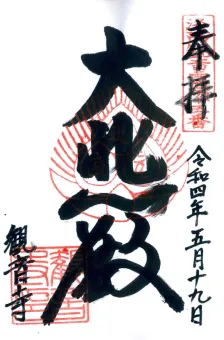 奉拝
大悲殿
令和四年五月十九日
観音寺